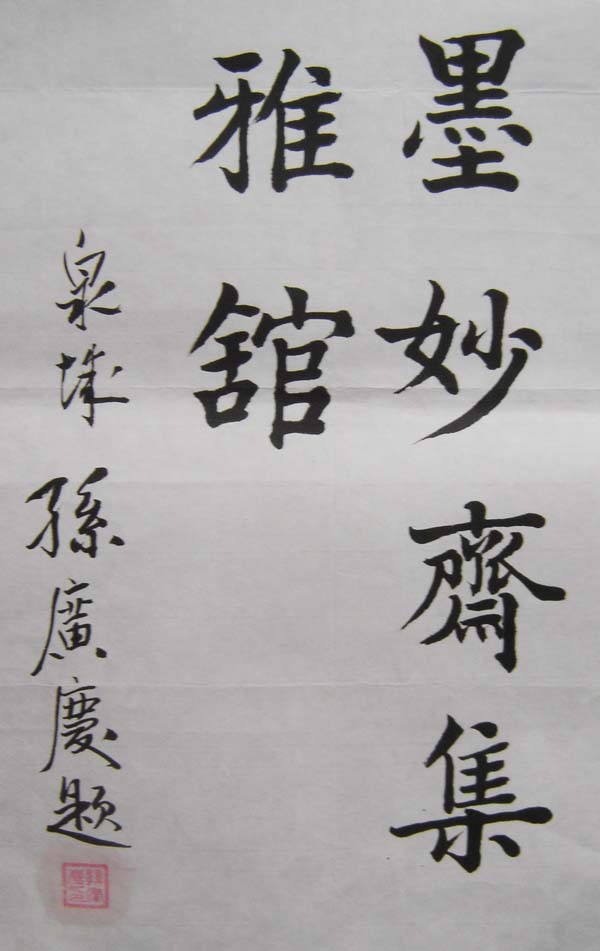 墨妙齋集
雅舘
泉城孫廣慶题